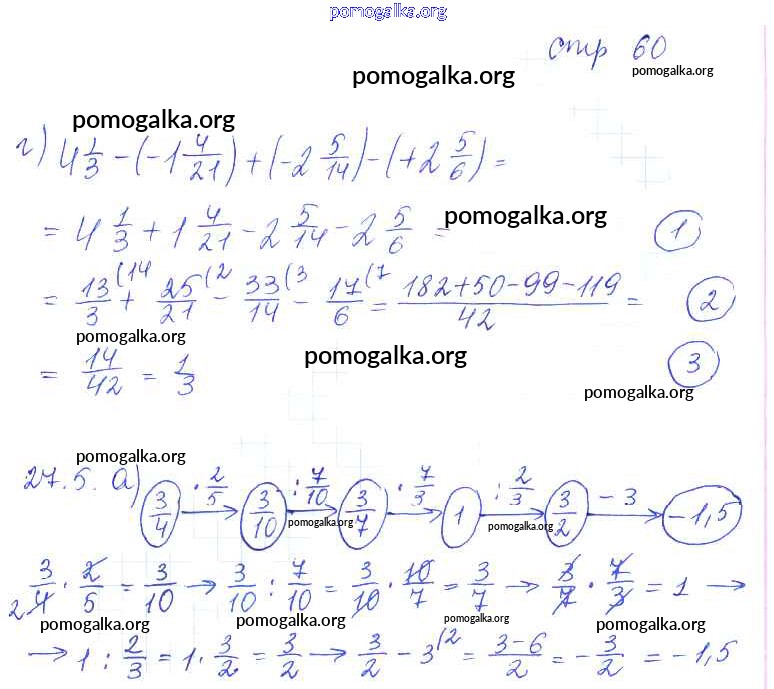 pomogalka.org
стр 60
pomogalka.org
pomogalka.org
pomogalka.org
г) 4 1/3 - (-1 4/21) + (-2 5/14) - (+2 5/6) =
= 4 1/3 + 1 4/21 - 2 5/14 - 2 5/6 = 1
pomogalka.org
= 13/3 (14 + 25/21 (2 - 33/14 (3 - 17/6 (7 = 182+50-99-119/42 = 2
pomogalka.org
pomogalka.org
= 14/42 = 1/3 3
pomogalka.org
pomogalka.org
27.5. а) 3/4 · 2/5 → 3/10 : 7/10 → 3/7 · 7/3 → 1 : 2/3 → 3/2 - 3 → -1,5
pomogalka.org
pomogalka.org
2 3/4 · 2/5 = 3/10 → 3/10 : 7/10 = 3/10 · 10/7 = 3/7 → 3/7 · 7/3 = 1 →
pomogalka.org
pomogalka.org
pomogalka.org
pomogalka.org
→ 1 : 2/3 = 1 · 3/2 = 3/2 → 3/2 - 3 (2 = 3-6/2 = - 3/2 = -1,5